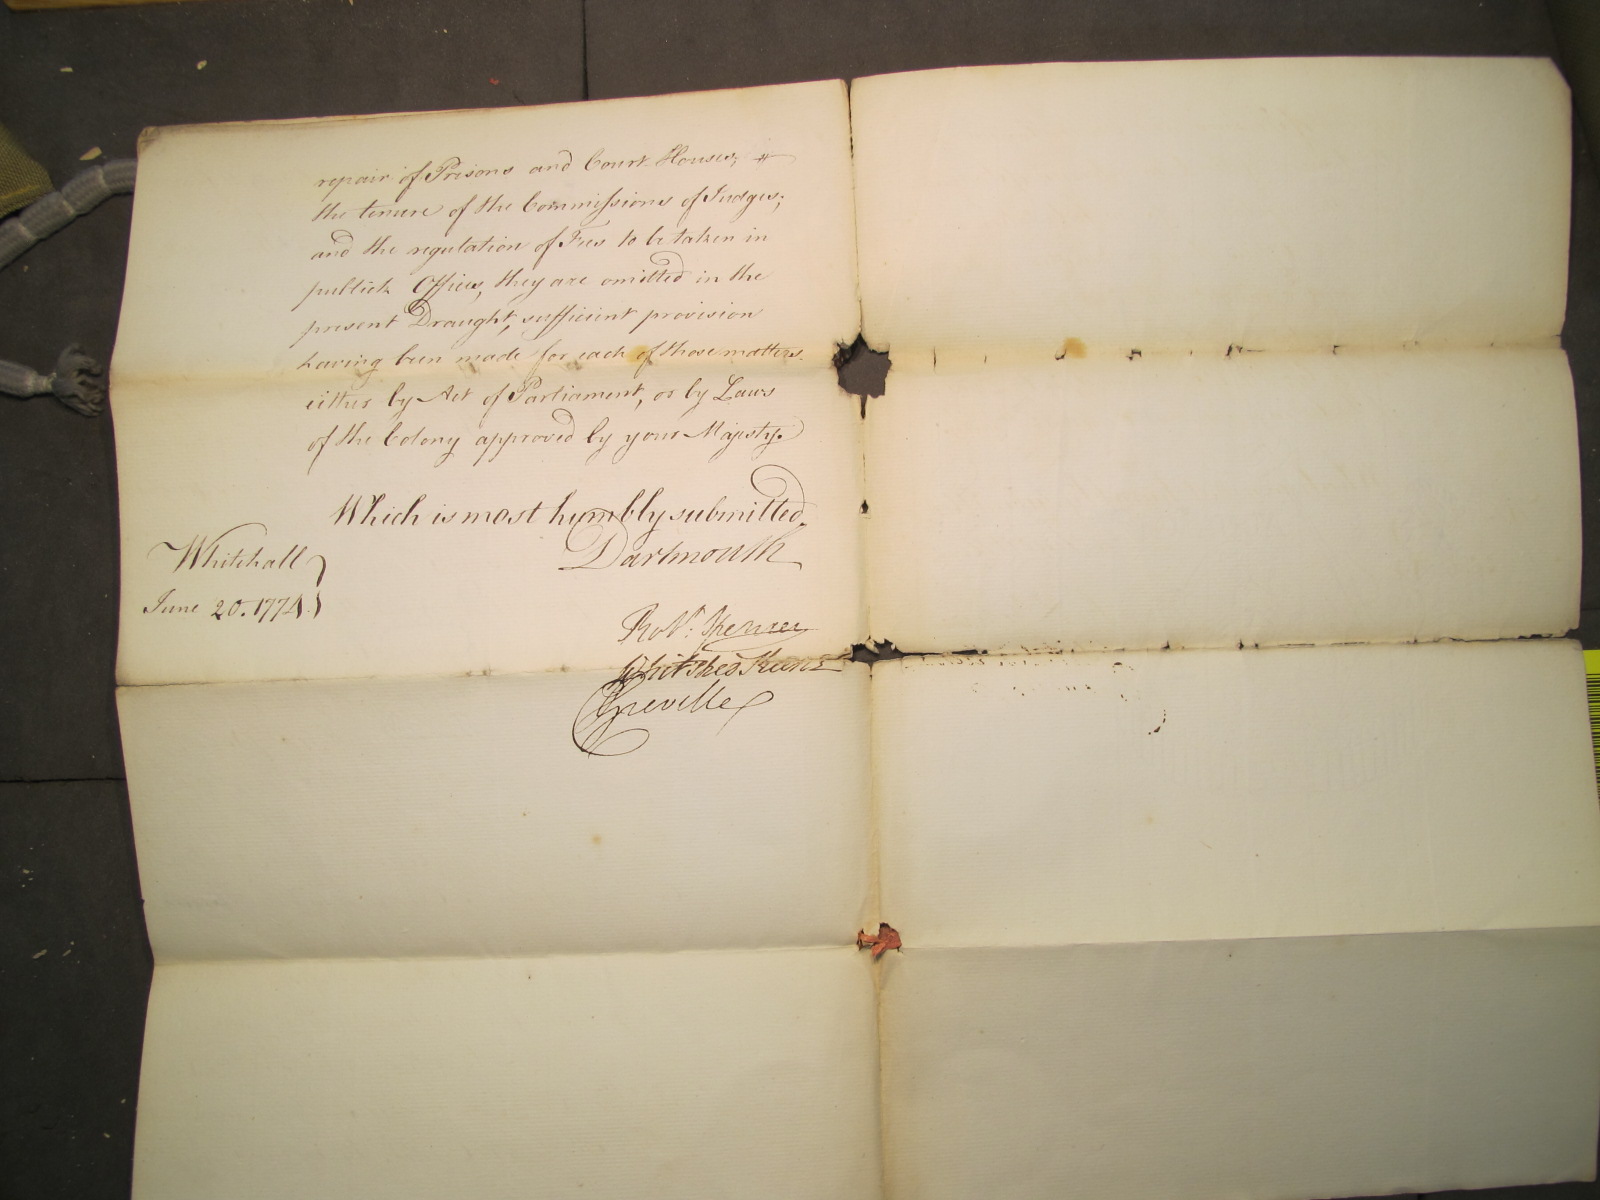 repair of Prisons and Court Houses;
the tenure of the Commissions of Judges;
and the regulation of Fees to be taken in
publick Offices, they are omitted in the
present Draught, sufficient provision
having been made for each of those matters.
either by Act of Parliament, or by Laws
of the Colony approved by your Majesty.
Which is most humbly submitted.
Dartmouth
Whitehall
June 20. 1774.
Robt. Spencer
Whitshed Keene
Greville